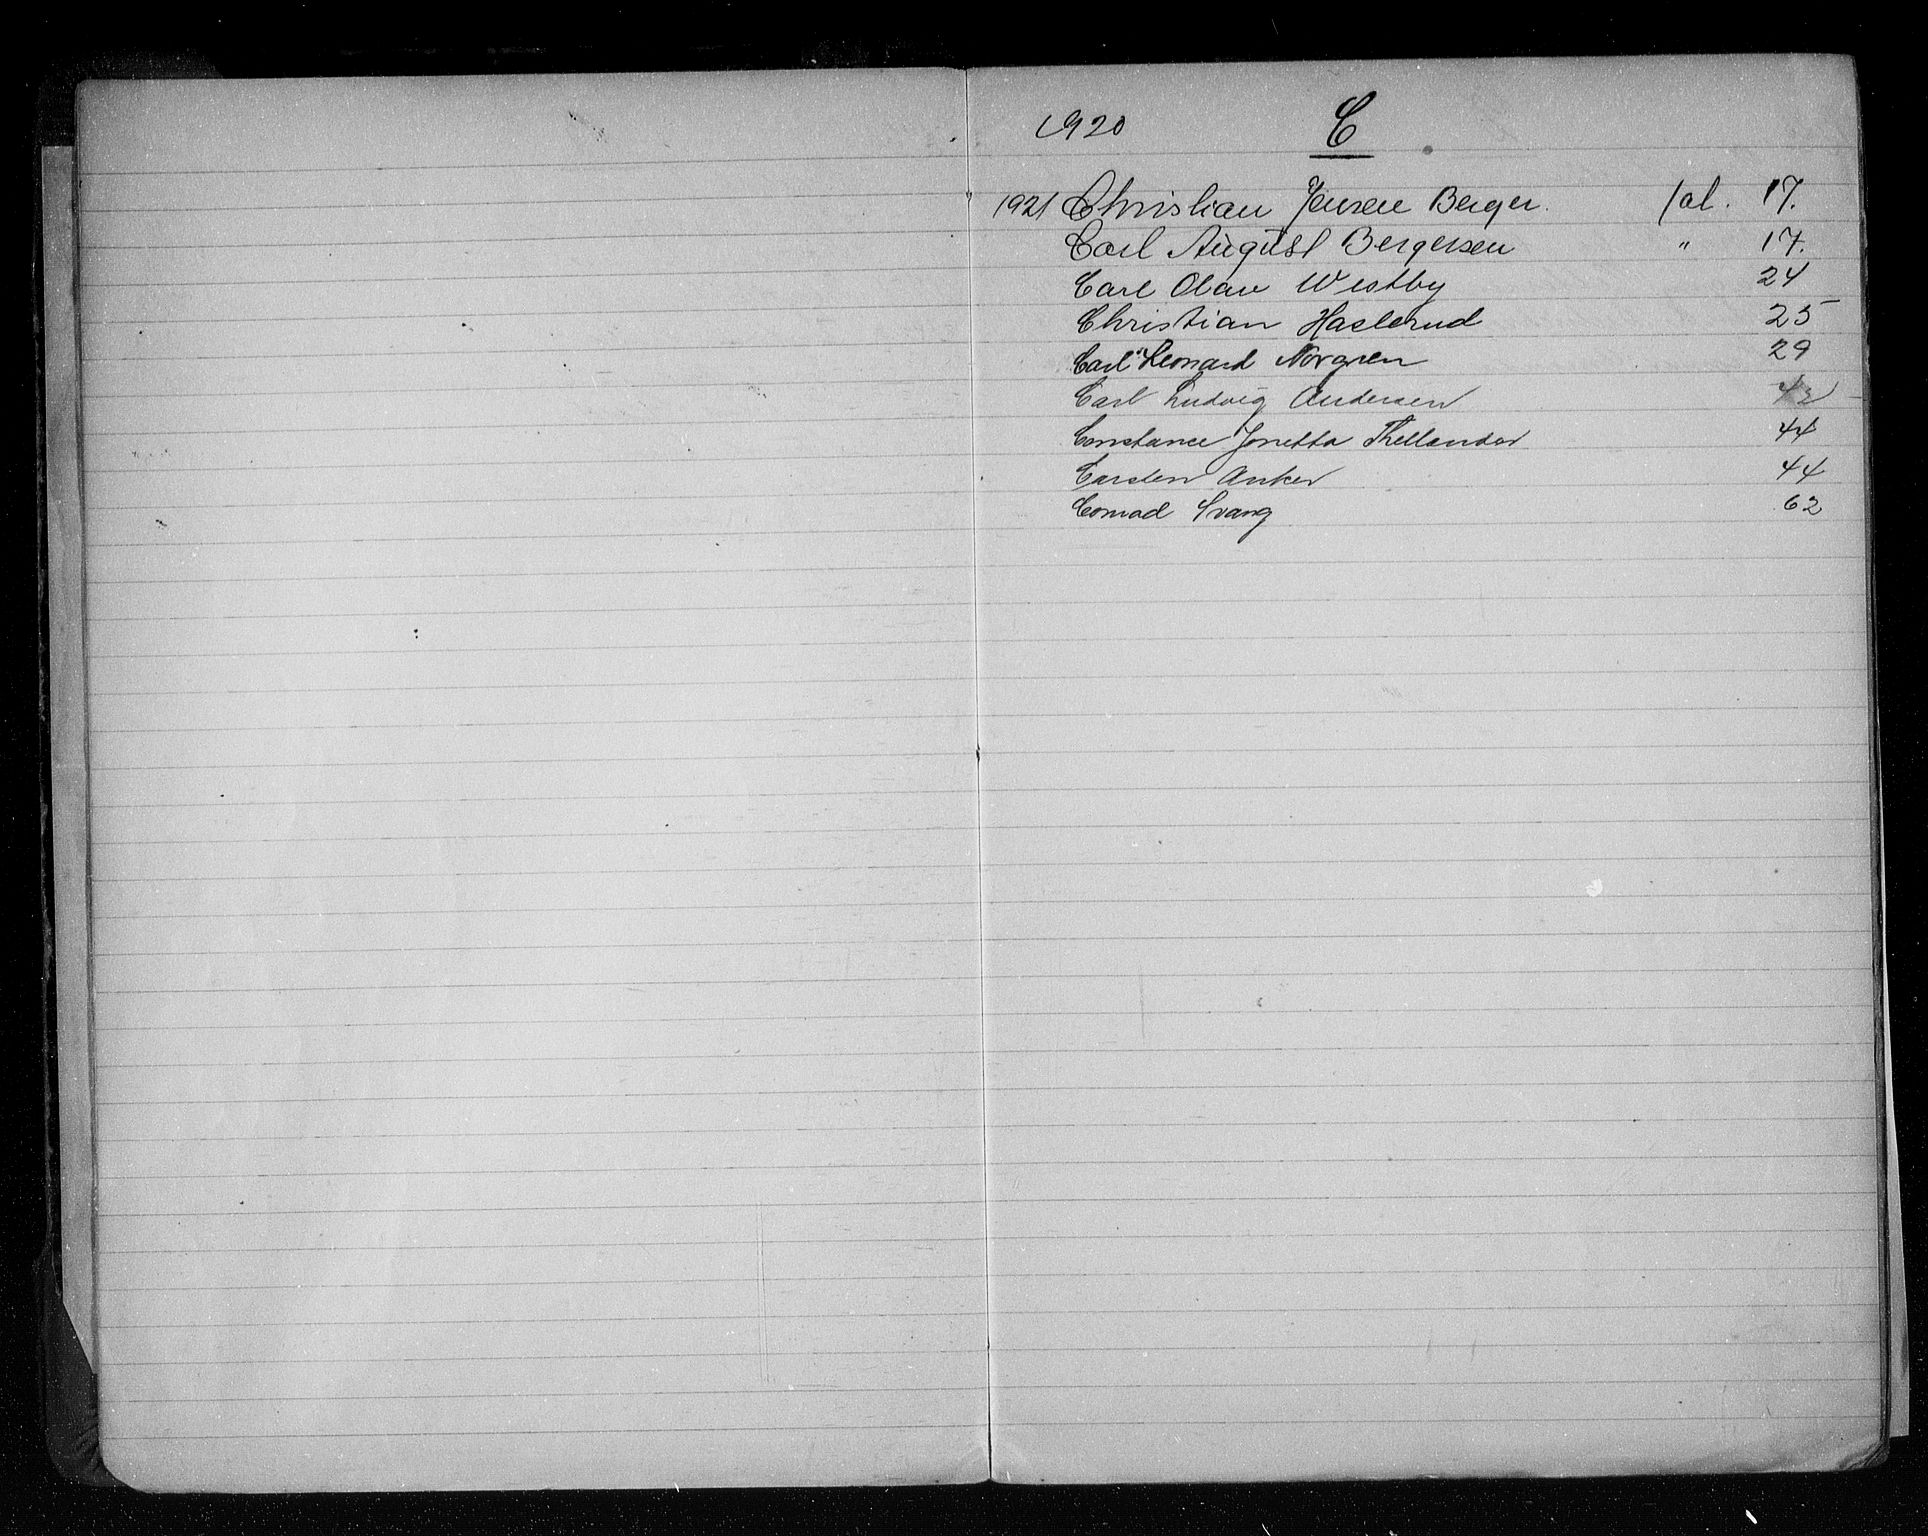 1920 C
1921 Christian Jensen Berger. fol. 17.
Carl August Bergersen " 17.
Carl Olav Westby 24
Christian Haslerud 25
Carl Leonard Norgren 29
Carl Ludvig Andersen
Constance Jonetta Thellander 44
Carsten Anker 44
Conrad Svang 62